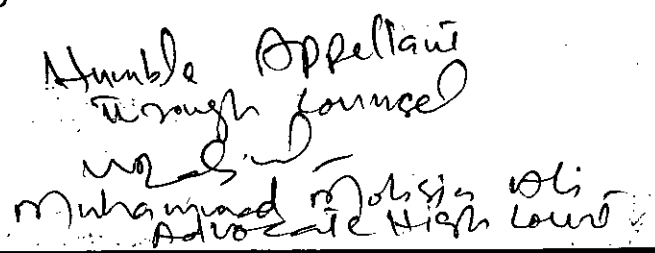 Humble Appellant
Through Counsel
Muhammad Mohsin Ali
Advocate High Court